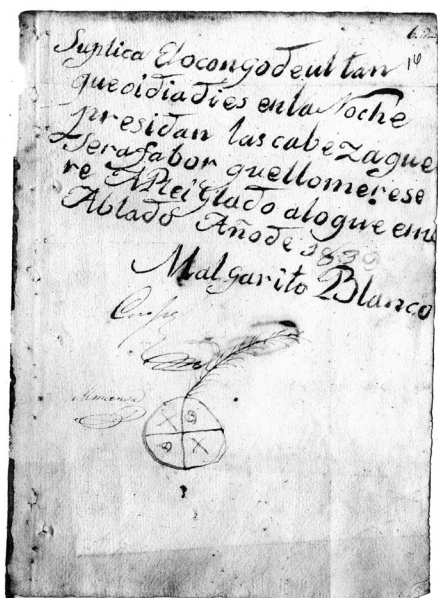 14
Suplica El ocongo de ultan
que oi dia dies en la Noche
presidan las cabezaque
Sera fabor quellomerese
re Areiglado alogue eme
Ablado Año de 1839
Malgarito Blanco